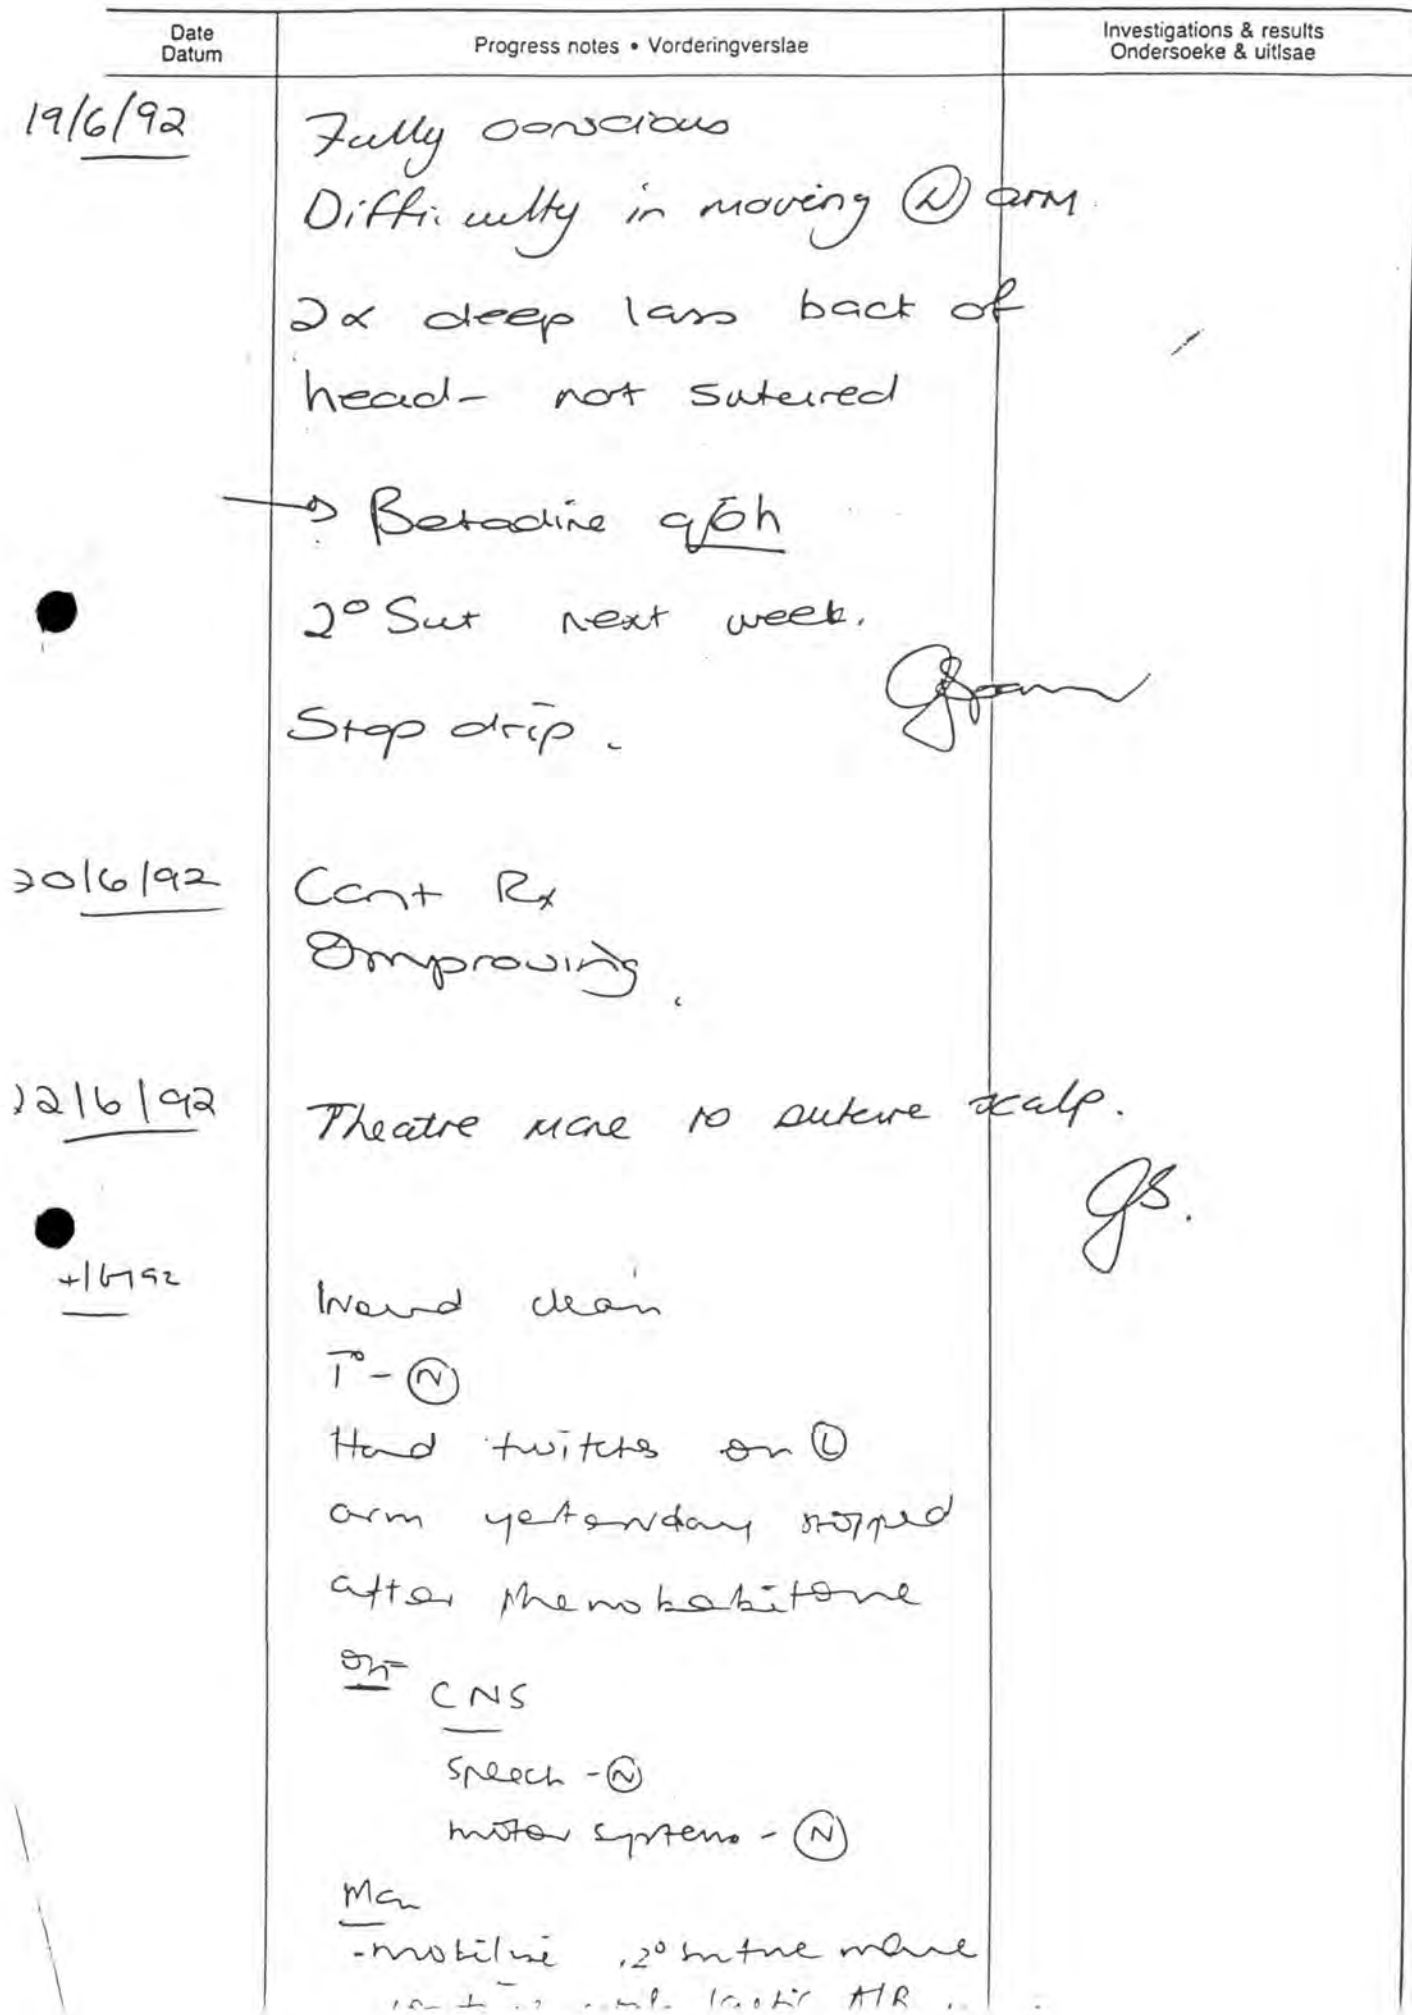 Date
Datum
Progress notes • Vorderingverslae
Investigations & results
Ondersoeke & uitlsae
19/6/92
Fully conscious
Difficulty in moving Ⓛ arm.
2x deep lass back of
head - not sutured
→ Betadine q6h
2° Sut next week.
Stop drip.
20/6/92
Cont Rx
Improving.
22/6/92
Theatre mane to suture scalp.
GS.
Wound clean
T° - Ⓝ
Had twitches on Ⓛ
arm yesterday stopped
after phenobabitone
CNS
speech - Ⓝ
motor system - Ⓝ
Man
- mobilise 2° suture mane